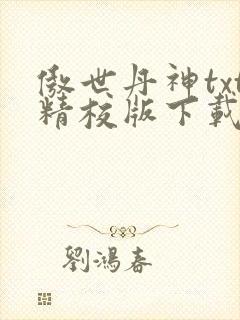 傲世丹神txt
精校版下載
劉鴻春